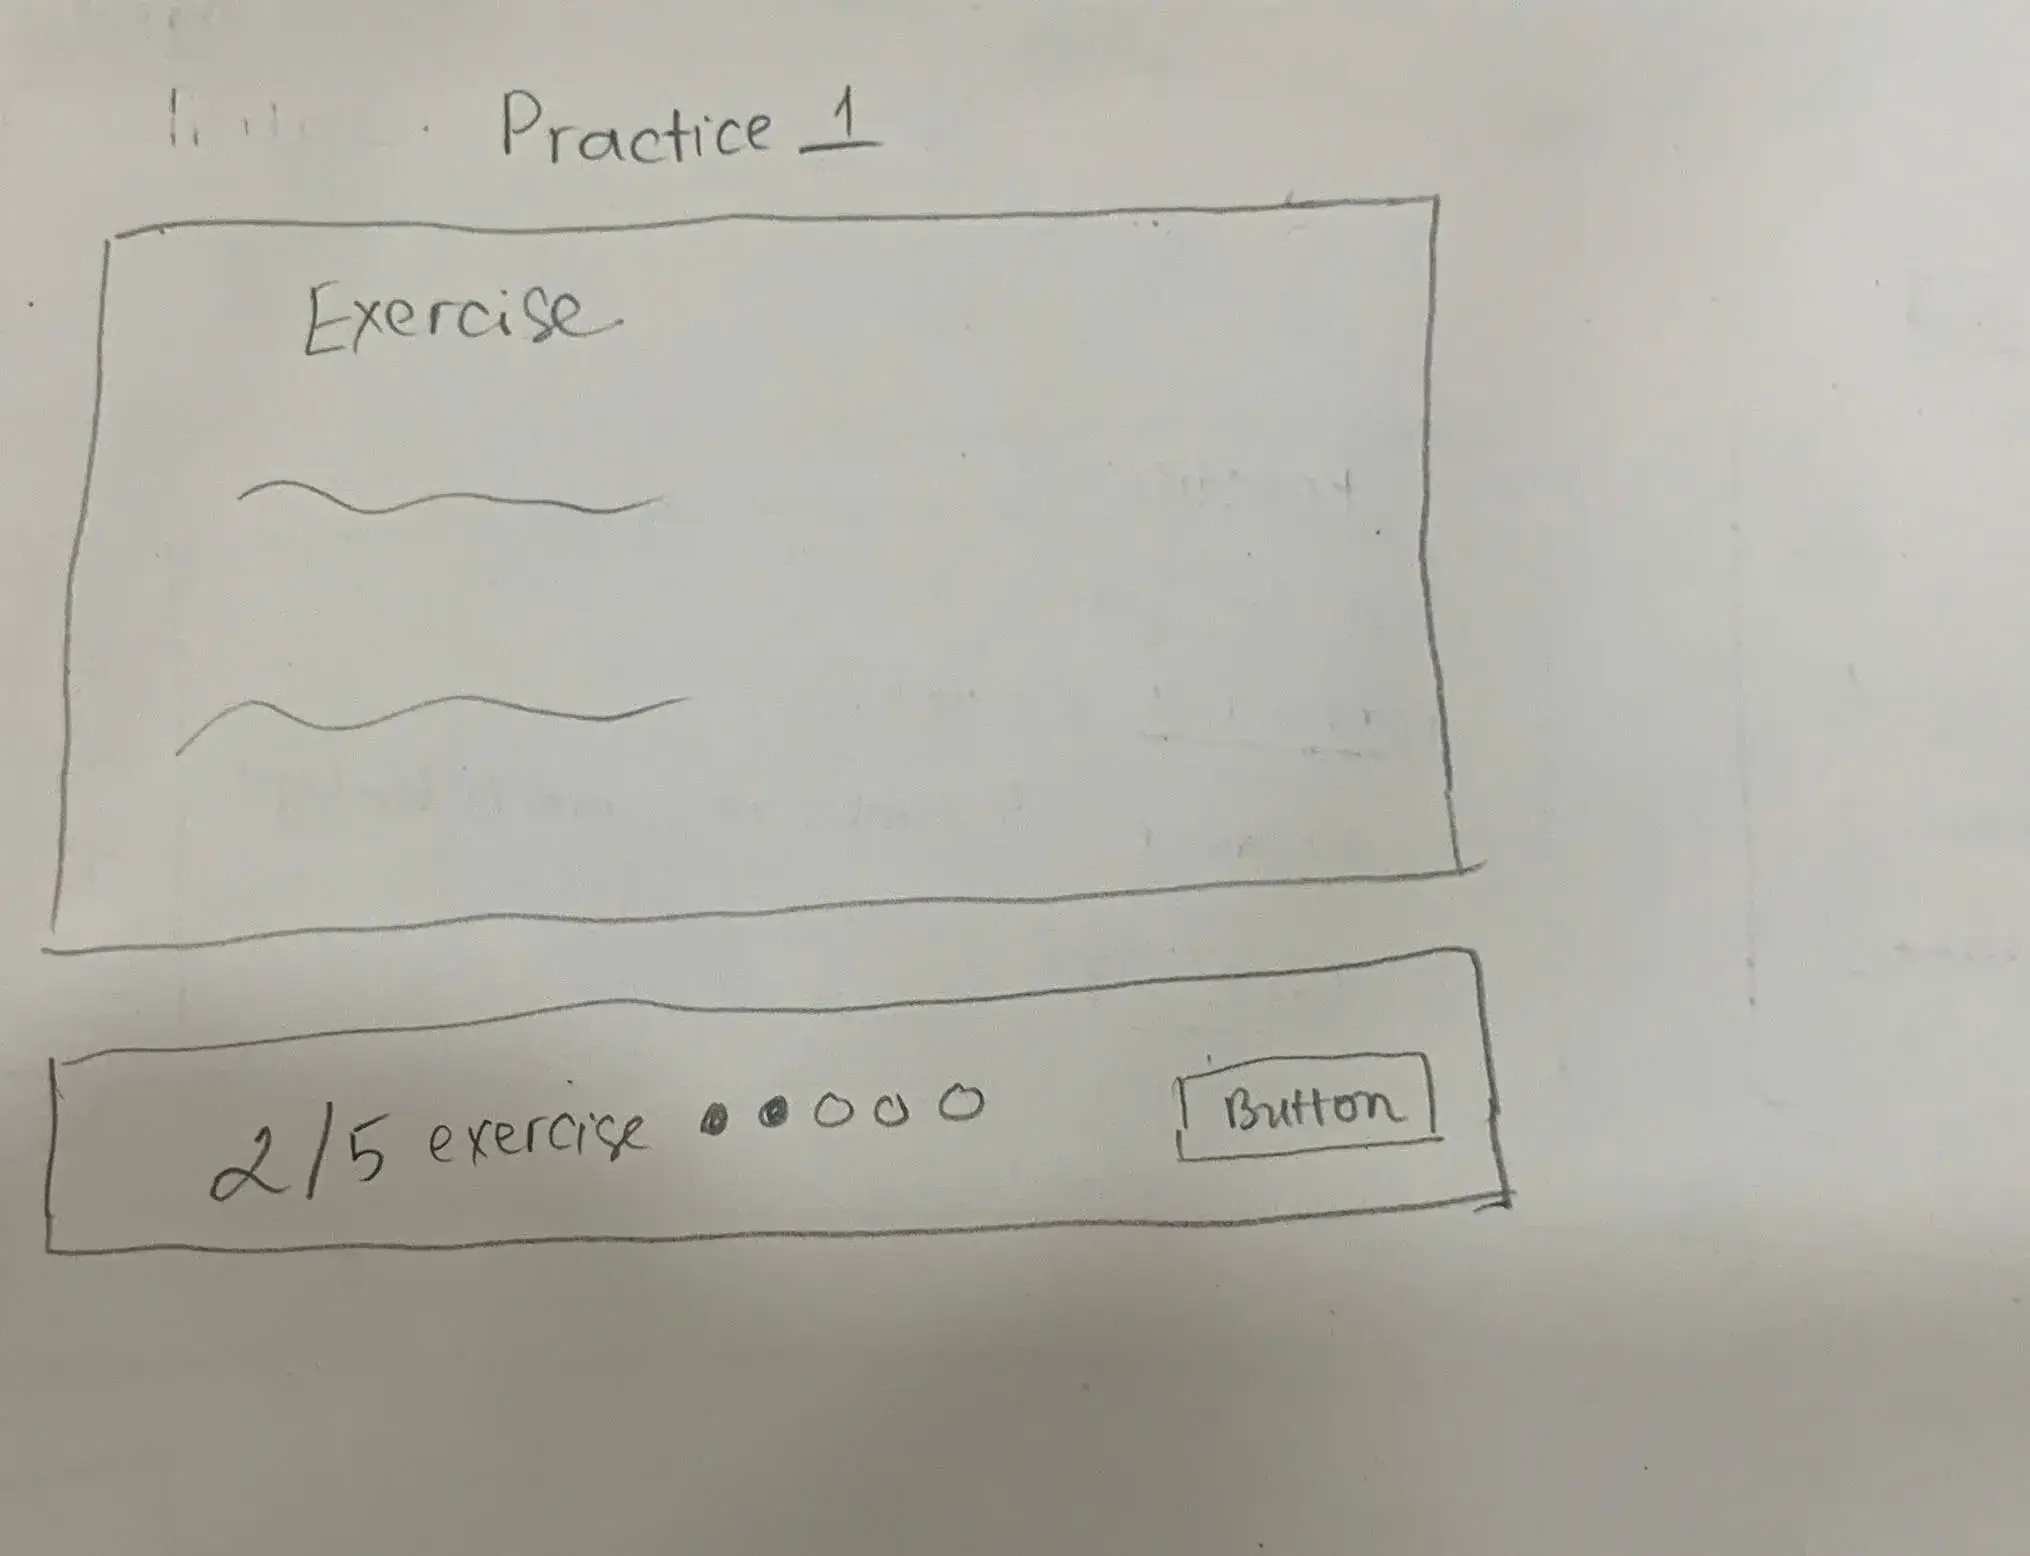 Practice 1
Exercise
2/5 exercise
Button